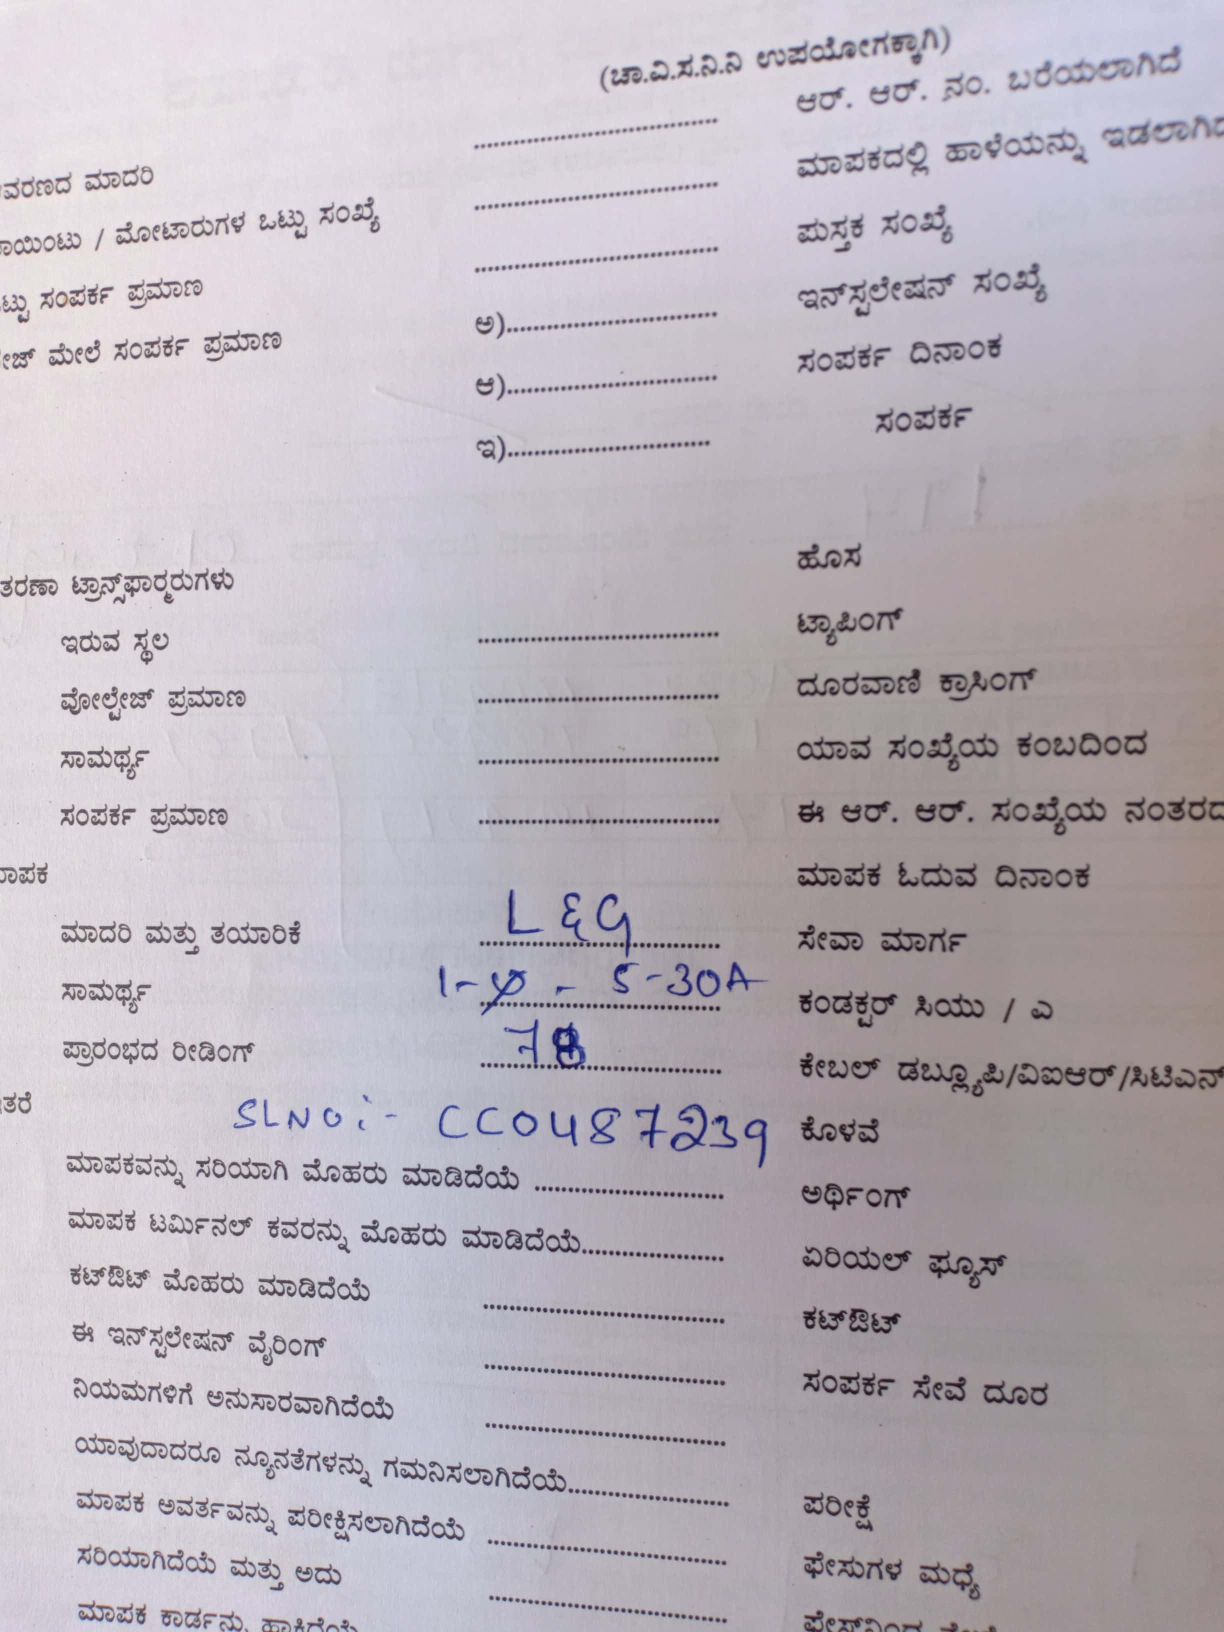 (ಚಾ.ವಿ.ಸ.ನಿ.ನಿ ಉಪಯೋಗಕ್ಕಾಗಿ)
ಮಾದರಿ ........ ಆರ್. ಆರ್. ನಂ. ಬರೆಯಲಾಗಿದೆ
/ ಮೋಟಾರುಗಳ ಒಟ್ಟು ಸಂಖ್ಯೆ ........ ಮಾಪಕದಲ್ಲಿ ಹಾಳೆಯನ್ನು
ಸಂಪರ್ಕ ಪ್ರಮಾಣ ........ ಪುಸ್ತಕ ಸಂಖ್ಯೆ
ಮೇಲೆ ಸಂಪರ್ಕ ಪ್ರಮಾಣ ಅ)........ ಇನ್‌ಸ್ಟಲೇಷನ್ ಸಂಖ್ಯೆ
ಆ)........ ಸಂಪರ್ಕ ದಿನಾಂಕ
ಇ)........ ಸಂಪರ್ಕ
ಟ್ರಾನ್ಸ್‌ಫಾರ್‍ಮರುಗಳು ಹೊಸ
ಇರುವ ಸ್ಥಲ ........ ಟ್ಯಾಪಿಂಗ್
ವೋಲ್ಟೇಜ್ ಪ್ರಮಾಣ ........ ದೂರವಾಣಿ ಕ್ರಾಸಿಂಗ್
ಸಾಮರ್ಥ್ಯ ........ ಯಾವ ಸಂಖ್ಯೆಯ ಕಂಬದಿಂದ
ಸಂಪರ್ಕ ಪ್ರಮಾಣ ........ ಈ ಆರ್. ಆರ್. ಸಂಖ್ಯೆಯ
ಮಾಪಕ ಓದುವ ದಿನಾಂಕ
ಮಾದರಿ ಮತ್ತು ತಯಾರಿಕೆ L&G ಸೇವಾ ಮಾರ್ಗ
ಸಾಮರ್ಥ್ಯ 1-φ - 5-30A ಕಂಡಕ್ಟರ್ ಸಿಯು / ಎ
ಪ್ರಾರಂಭದ ರೀಡಿಂಗ್ ........ ಕೇಬಲ್ ಡಬ್ಲ್ಯೂಪಿ/ವಿಐಆರ್/ಸಿಟಿಎನ್
SLNO:- CC0487239 ಕೊಳವೆ
ಮಾಪಕವನ್ನು ಸರಿಯಾಗಿ ಮೊಹರು ಮಾಡಿದೆಯೆ ........ ಅರ್ಥಿಂಗ್
ಮಾಪಕ ಟರ್ಮಿನಲ್ ಕವರನ್ನು ಮೊಹರು ಮಾಡಿದೆಯೆ........ ಏರಿಯಲ್ ಫ್ಯೂಸ್
ಕಟ್‌ಔಟ್ ಮೊಹರು ಮಾಡಿದೆಯೆ ........ ಕಟ್‌ಔಟ್
ಈ ಇನ್‌ಸ್ಟಲೇಷನ್ ವೈರಿಂಗ್ ........ ಸಂಪರ್ಕ ಸೇವೆ ದೂರ
ನಿಯಮಗಳಿಗೆ ಅನುಸಾರವಾಗಿದೆಯೆ ........
ಯಾವುದಾದರೂ ನ್ಯೂನತೆಗಳನ್ನು ಗಮನಿಸಲಾಗಿದೆಯೆ........ ಪರೀಕ್ಷೆ
ಮಾಪಕ ಅವರ್ತವನ್ನು ಪರೀಕ್ಷಿಸಲಾಗಿದೆಯೆ ........ ಫೇಸುಗಳ ಮಧ್ಯೆ
ಸರಿಯಾಗಿದೆಯೆ ಮತ್ತು ಅದು ........
ಮಾಪಕ